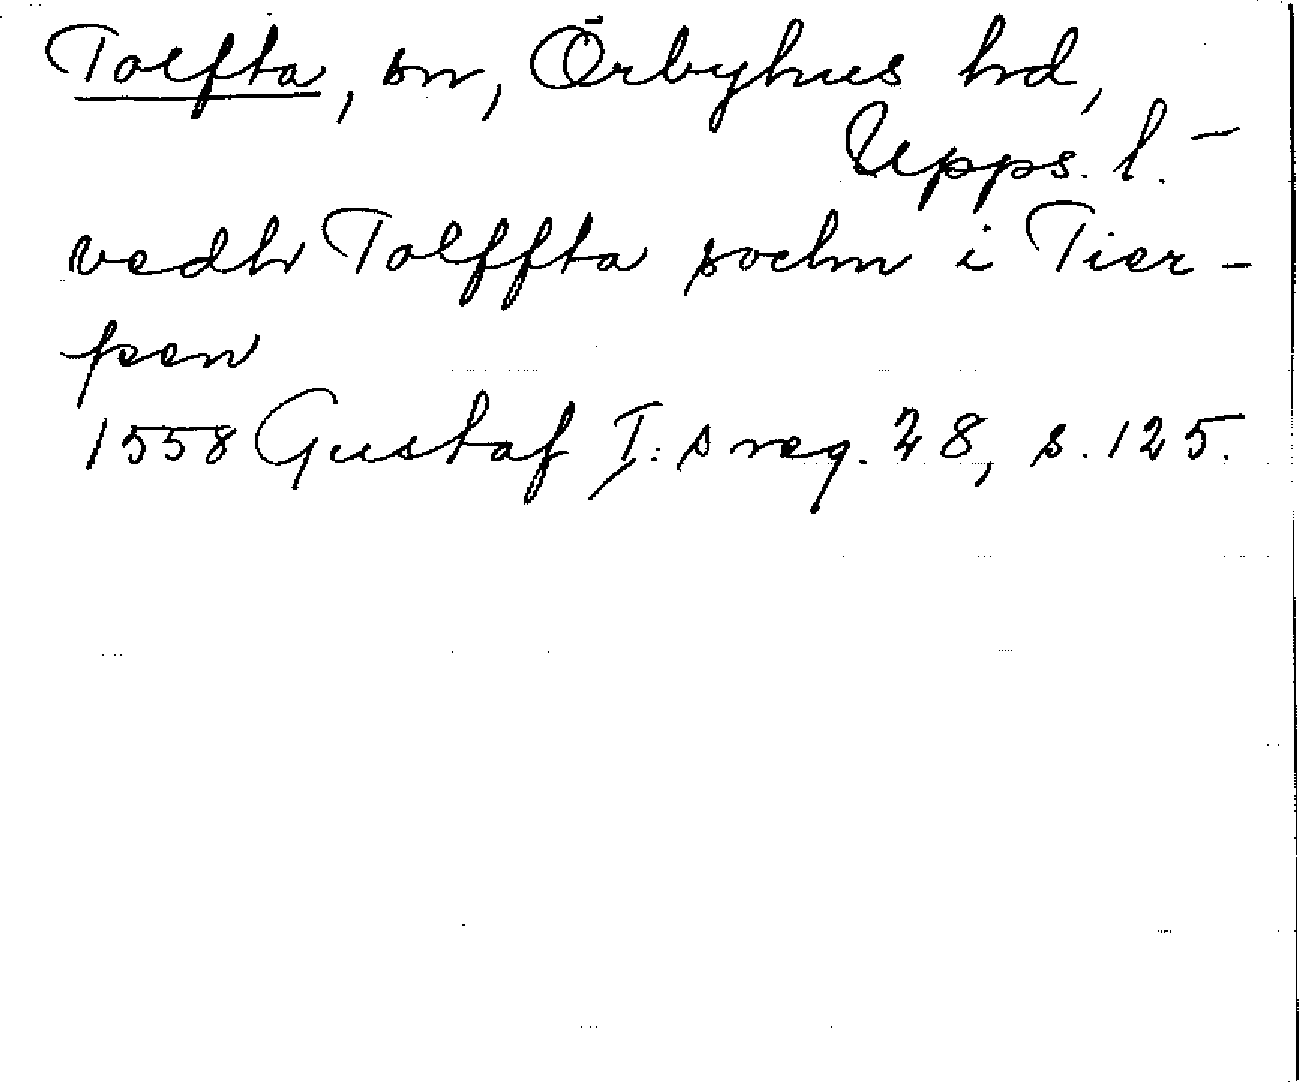 Tolfta, sn, Örbyhus hd,
Upps. l. –
vedh Tolffta sochn i Tier-
pen
1558 Gustaf I:s reg. 28, s. 125.